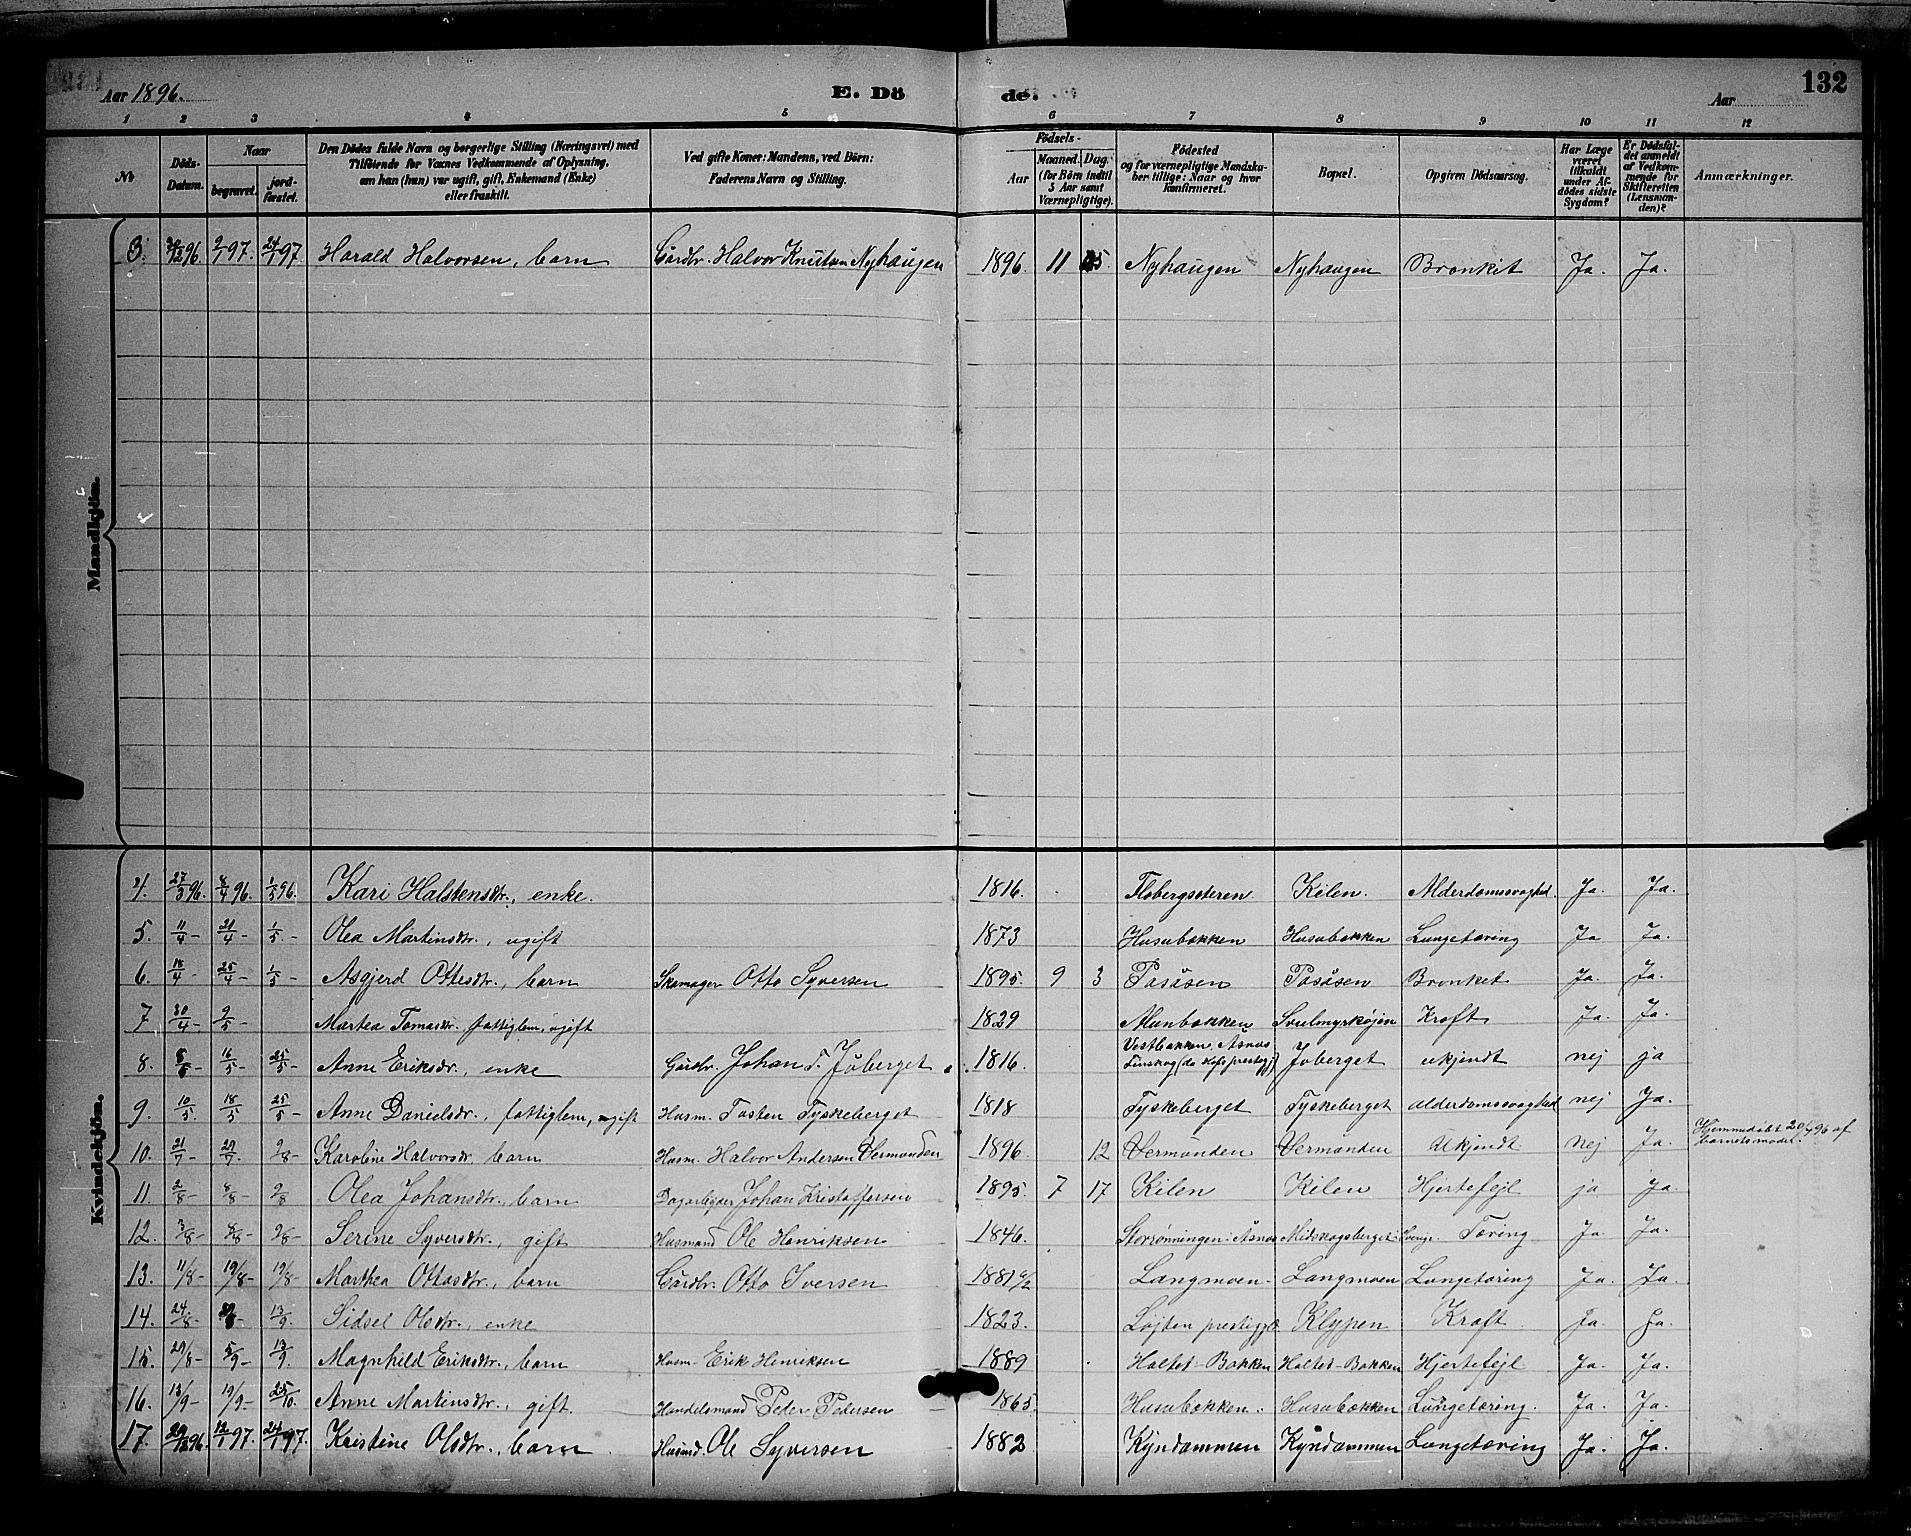 Aar 1896.
E. Dö de.
Aar
132
1 2 3 4 5 6 7 8 9 10 11 12
No
Döds-Datum.
Naar begravet. jord-fæstet.
Den Dödes fulde Navn og borgerlige Stilling (Næringsvei) med Tilföiende for Voxnes Vedkommende af Oplysning, om han (hun) var ugift, gift, Enkemand (Enke) eller fraskilt.
Ved gifte Koner: Mandens, ved Börn: Faderens Navn og Stilling.
Födsels- Aar Maaned. Dag. (for Börn indtil 5 Aar samt Værnepligtige).
Födested og for værnepligtige Mandskaber tillige: Naar og hvor konfirmeret.
Bopæl.
Opgiven Dödsaarsag.
Har Læge været tilkaldt under Afdödes sidste Sygdom?
Er Dödsfaldet anmeldt af Vedkommende for Skifteretten (Lensmanden)?
Anmærkninger.
Mandkjön.
3. 2/1 97. 24/1 97 Harald Halvorsen, barn Gårdbr. Halvor Knutsen Nyhaugen 1896 11 Nyhaugen Nyhaugen Bronkit Ja. Ja.
Kvindekjön.
4. 27/3 96. 8/4 96. 1/5 96. Kari Halstensdtr., enke. 1816. Flobergseteren Kilen. Alderdomssvaghed. Ja. Ja.
5. 11/4 – 21/4 – 1/5 – Olea Martinsdtr., ugift 1873 Husubakken Husubakken Lungetæring Ja Ja.
6. 18/4 – 25/4 – 1/5 – Asgjerd Ottesdtr., barn Skomager Otto Syversen 1895 9 3 Påsåsen Påsåsen Bronket Ja. Ja.
7 30/4 – 9/5 – Martea Tomasdtr. fattiglem, ugift 1829 Svulmyrkojen Kræft Ja. Ja.
8. 16/5 – 25/5 – Anne Eriksdtr., enke Gårdbr. Johan T. Joberget 1816. Vestbakken, Åsnes Finskog Joberget ukjendt nej ja
9. 10/5. 18/5 25/5 – Anne Danielsdtr., fattiglem, ugift Husm. Tosten Tyskeberget 1818 Tyskeberget Tyskeberget alderdomssvaghed nej Ja.
10. 21/7 – 29/7. 2/8 – Karoline Halvorsdr. barn Husm. Halvor Andersen Vermunden 1896. 12 Vermunden Vermunden Ukjendt nej Ja. Hjemmedøbt 20/7 96 af barnets moder.
11. 2/8 – 8/8 – 2/8 Olea Johansdtr., barn Johan Kristoffersen 1895. 7 17 Kilen Kilen Hjertefejl ja Ja.
12. 3/8 – 8/8 – 2/8 – Serine Syversdtr., gift Husmand Ole Henriksen 1846. Storrønningen. Åsnes Midskogsberget. Sverige. Tæring Ja Ja.
13. 11/8 – 19/8 – 19/8 – Marthea Ottosdtr., barn Gårdbr. Otto Iversen 1881 6/2 Langmoen. Langmoen Lungetæring Ja. Ja.
14. 24/8 – 13/9. Sidsel Olsdtr., enke 1823. Løjten prestegjd. Klypen Kræft Ja. Ja.
15. 29/8 – 5/9 – 13/9. Magnhild Eriksdtr., barn Husm. Erik Henriksen 1889 Halted-Bakken Halted-Bakken Hjertefejl Ja. Ja.
16. 13/9 – 19/9 – 25/10. Anne Martinsdtr., gift. Handelsmand Peder Pedersen 1865. Husubakken. Husubakken Lungetæring. Ja. Ja.
17. 29/12 96. 12/1 97. 24/1 97. Kristine Olsdtr., barn Husmd. Ole Syversen 1882 Kyndammen Kyndammen Lungetæring Ja. Ja.